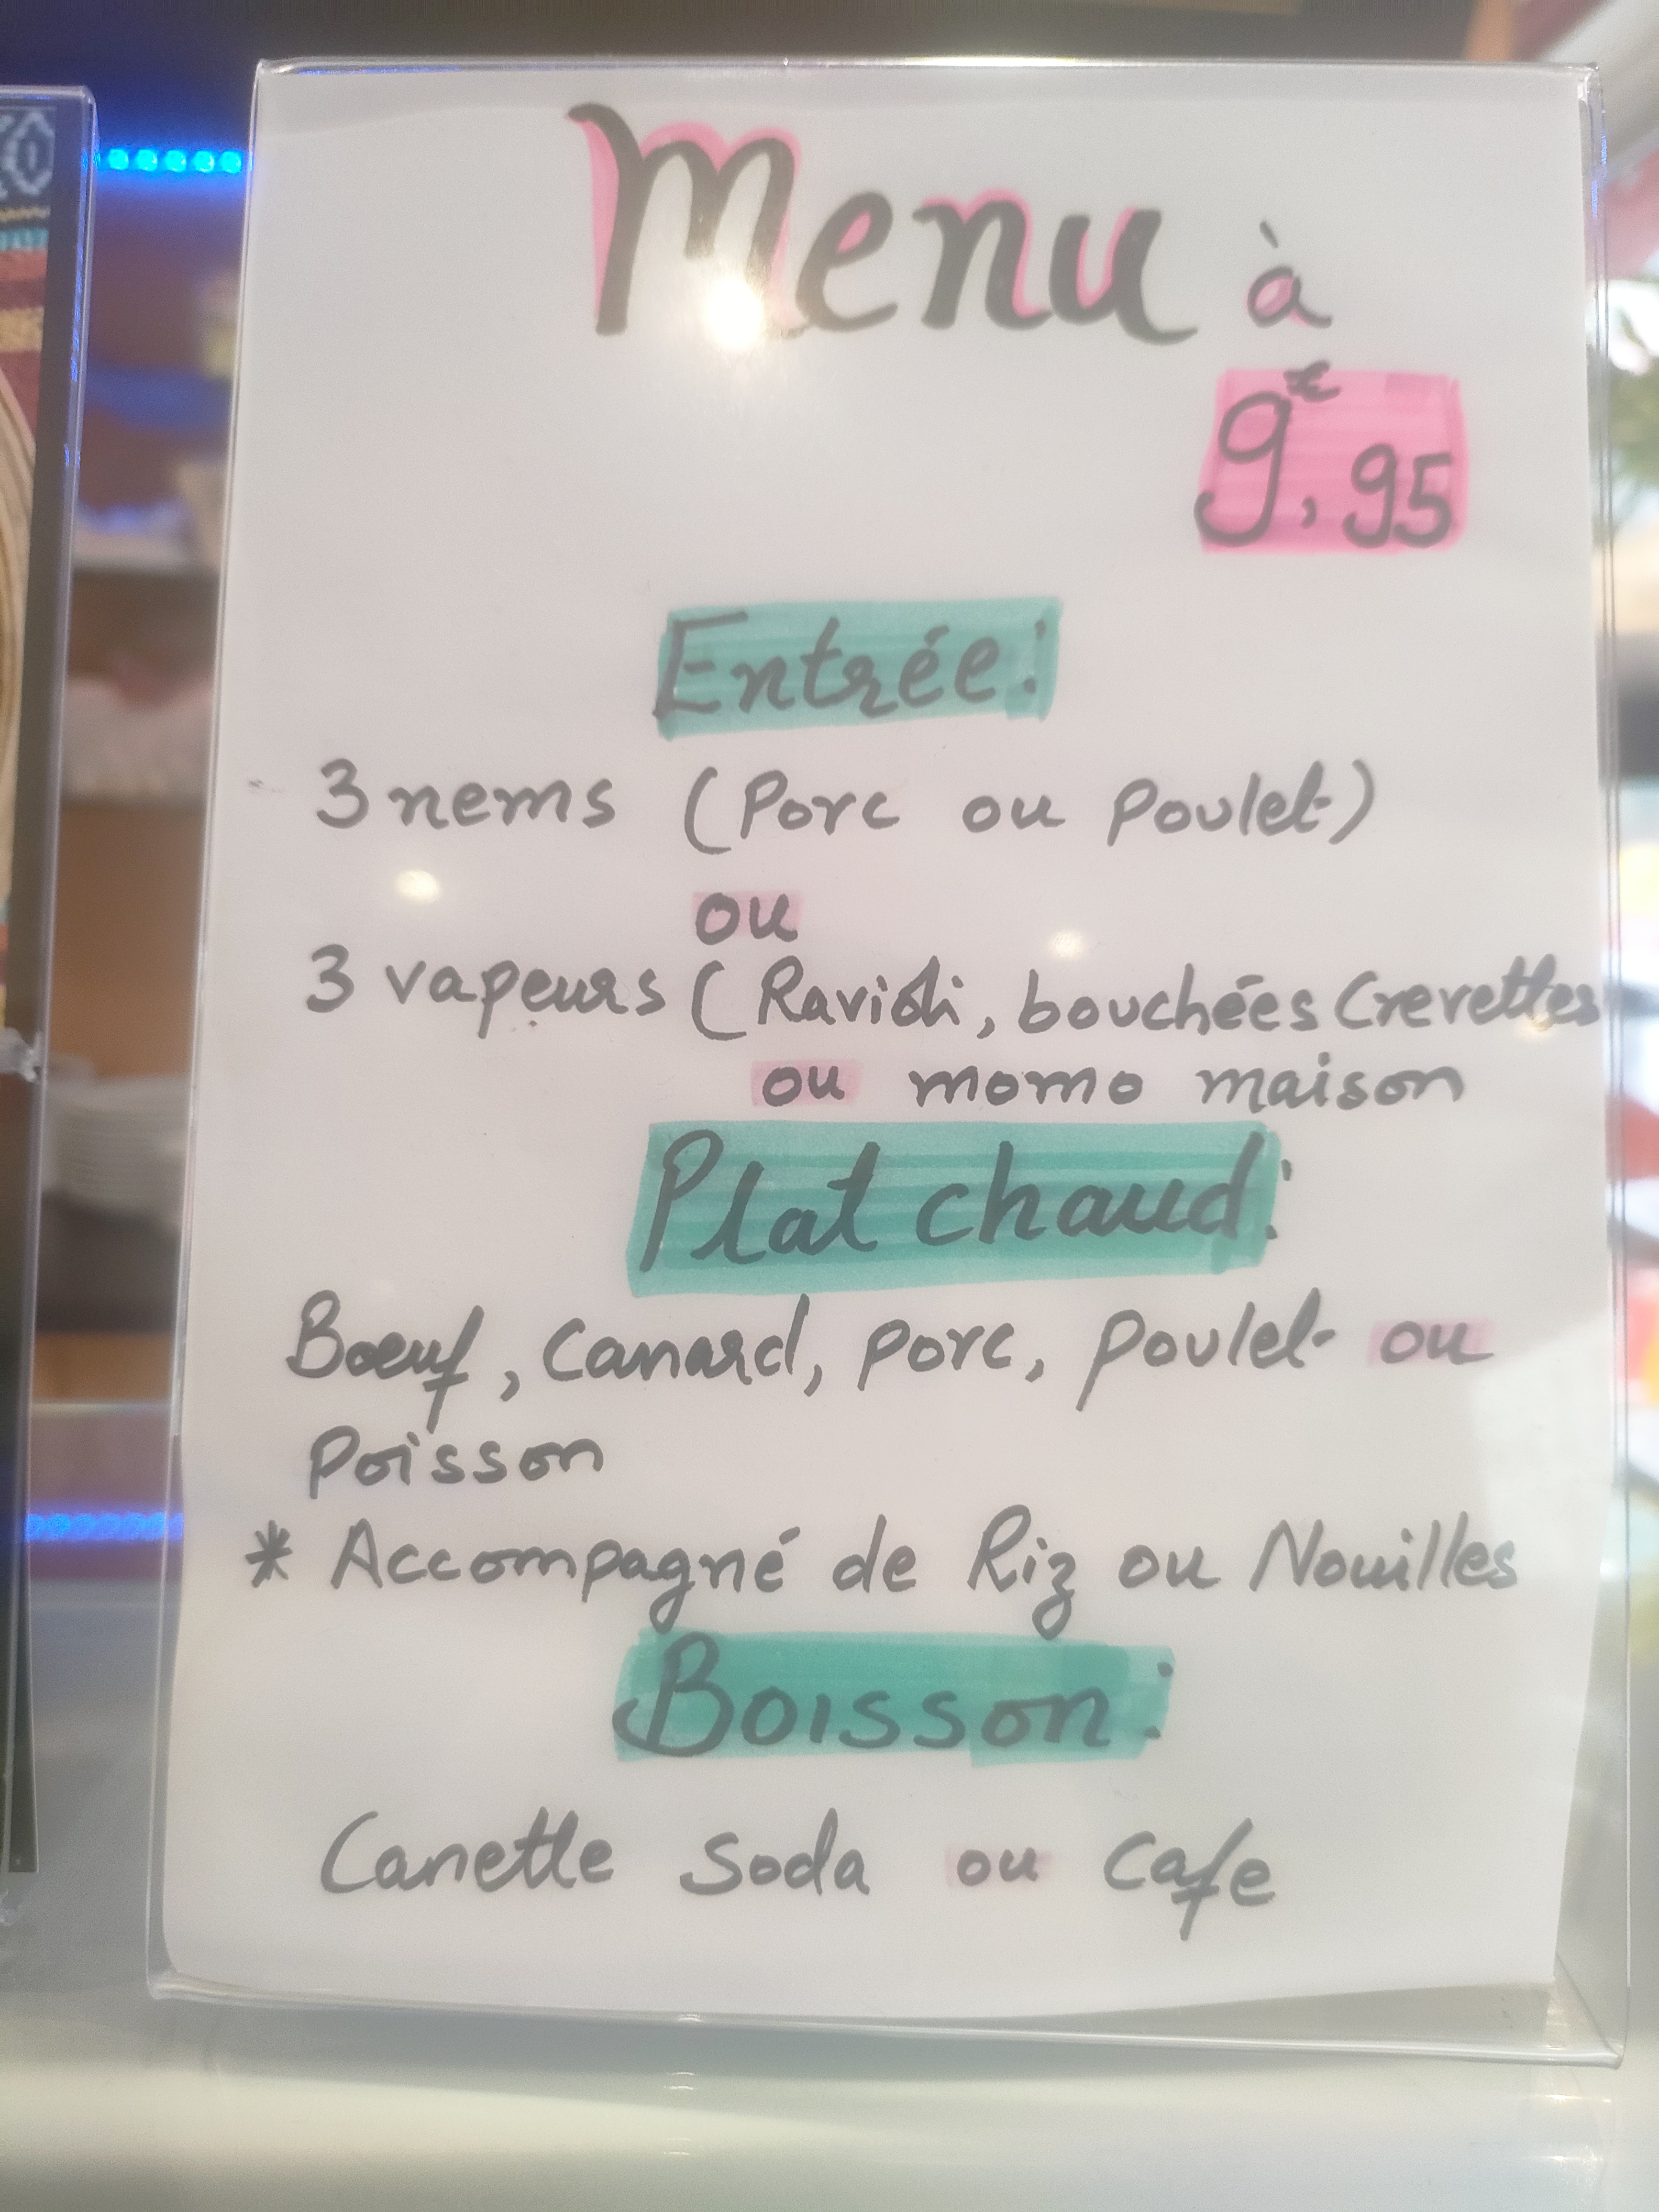 Menu à
9€,95
Entrée:
3 nems (Porc ou Poulet)
ou
3 vapeurs (Ravioli, bouchées Crevettes
ou momo maison
Plat chaud:
Bœuf, Canard, porc, poulet ou
Poisson
* Accompagné de Riz ou Nouilles
Boisson:
Canette Soda ou Cafe